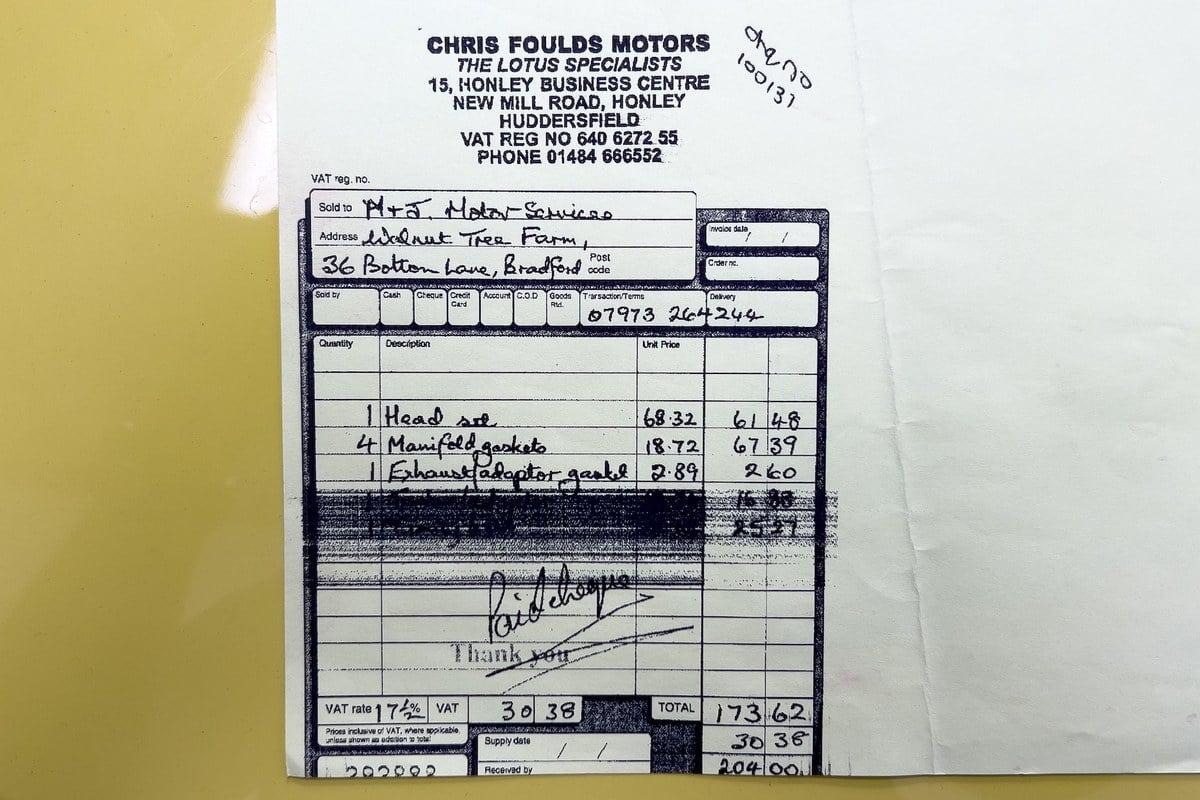 CHRIS FOULDS MOTORS
THE LOTUS SPECIALISTS
15, HONLEY BUSINESS CENTRE
NEW MILL ROAD, HONLEY
HUDDERSFIELD
VAT REG NO 640 6272 55
PHONE 01484 666552
Chq no
100137
VAT reg. no.
Sold to M+J. Motor Services
Address Walnut Tree Farm,
36 Bottom Lane, Bradford Post code
Invoice date / /
Order no.
Sold by Cash Cheque Credit Card Account C.O.D Goods Rtd. Transaction/Terms Delivery
07973 264244
Quantity Description Unit Price
1 Head set 68.32 61 48
4 Manifold gaskets 18.72 67 39
1 Exhaust/adaptor gasket 2.89 2 60
1 16 88
1 25 27
Paid cheque
Thank you
VAT rate 17½% VAT 30 38 TOTAL 173 62
Prices inclusive of VAT, where applicable, unless shown as addition to total
30 38
Supply date / /
Received by
204 00